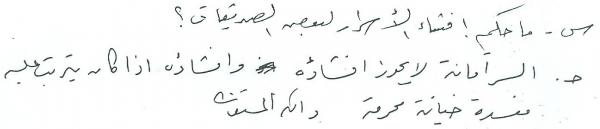 س - ما حكم إفشاء الأسرار لبعض الصديقات ؟
ج . السر أمانة لا يجوز افشاؤه وافشاؤه اذا كان يترتب عليه
مفسدة خيانة محرمة والله المستعان